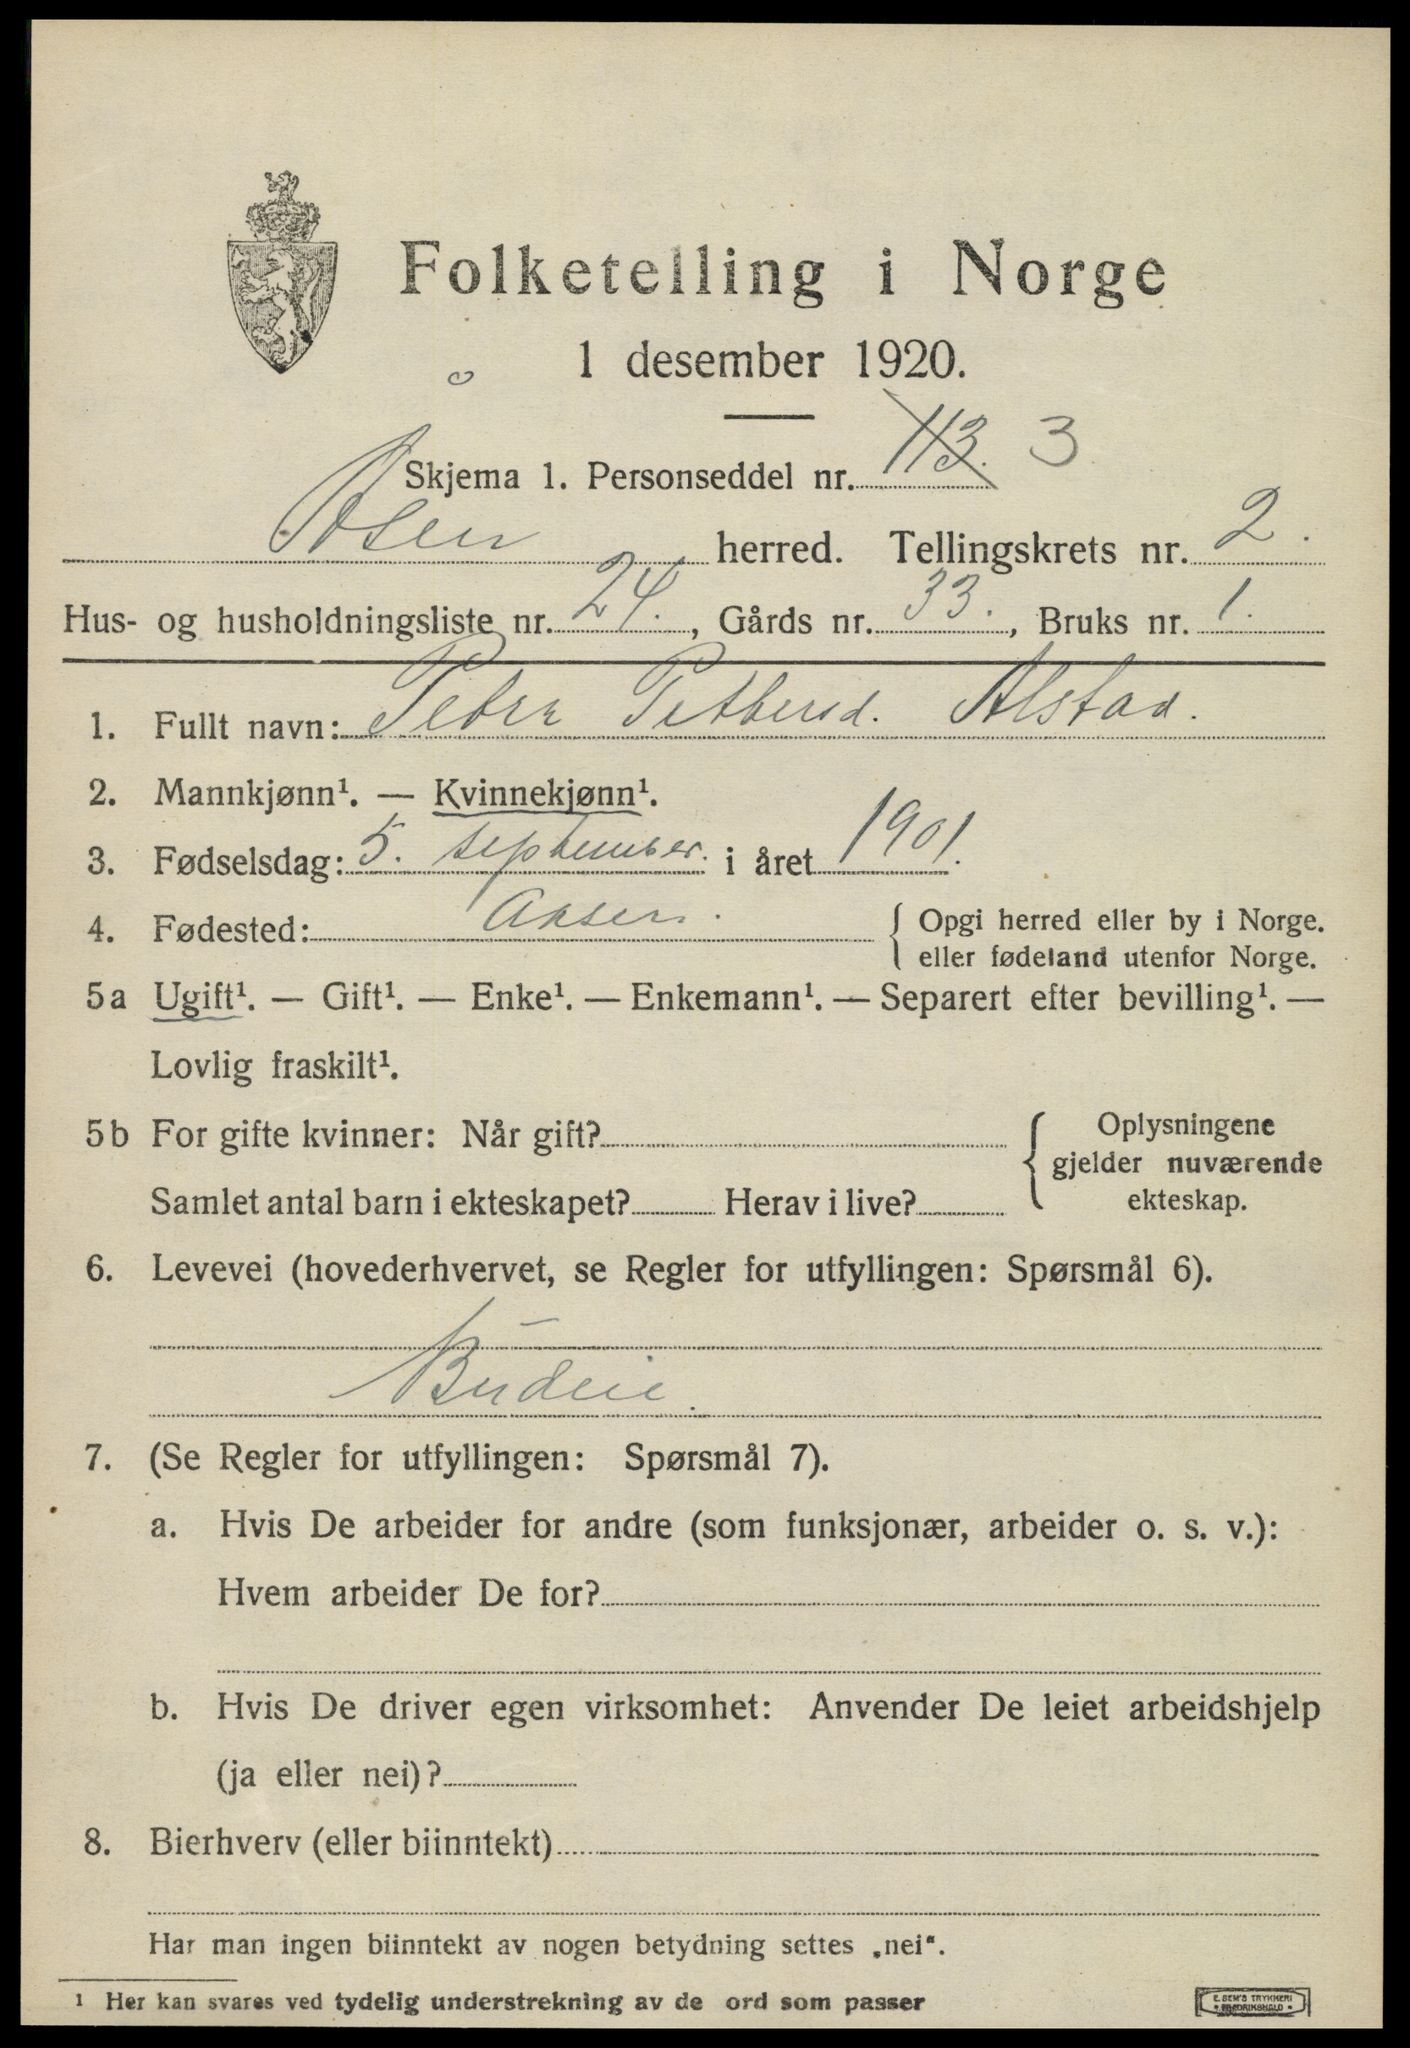 Folketelling i Norge
1 desember 1920.
Skjema 1. Personseddel nr. 113. 3
Åsen herred. Tellingskrets nr. 2.
Hus- og husholdningsliste nr. 24., Gårds nr. 33., Bruks nr. 1.
1. Fullt navn: Petra Petbersd. Alstad.
2. Mannkjønn¹. — Kvinnekjønn¹.
3. Fødselsdag: 5. september. i året 1901.
4. Fødested: Aasen. { Opgi herred eller by i Norge.
eller fødeland utenfor Norge.
5a Ugift¹. — Gift¹. — Enke¹. — Enkemann¹. — Separert efter bevilling¹. —
Lovlig fraskilt¹.
5b For gifte kvinner: Når gift? { Oplysningene
gjelder nuværende
Samlet antal barn i ekteskapet? Herav i live? ekteskap.
6. Levevei (hovederhvervet, se Regler for utfyllingen: Spørsmål 6).
Budeie.
7. (Se Regler for utfyllingen: Spørsmål 7).
a. Hvis De arbeider for andre (som funksjonær, arbeider o. s. v.):
Hvem arbeider De for?
b. Hvis De driver egen virksomhet: Anvender De leiet arbeidshjelp
(ja eller nei)?
8. Bierhverv (eller biinntekt)
Har man ingen biinntekt av nogen betydning settes „nei“.
¹ Her kan svares ved tydelig understrekning av de ord som passer
E. SEM'S TRYKKERI
• FREDRIKSHALD •